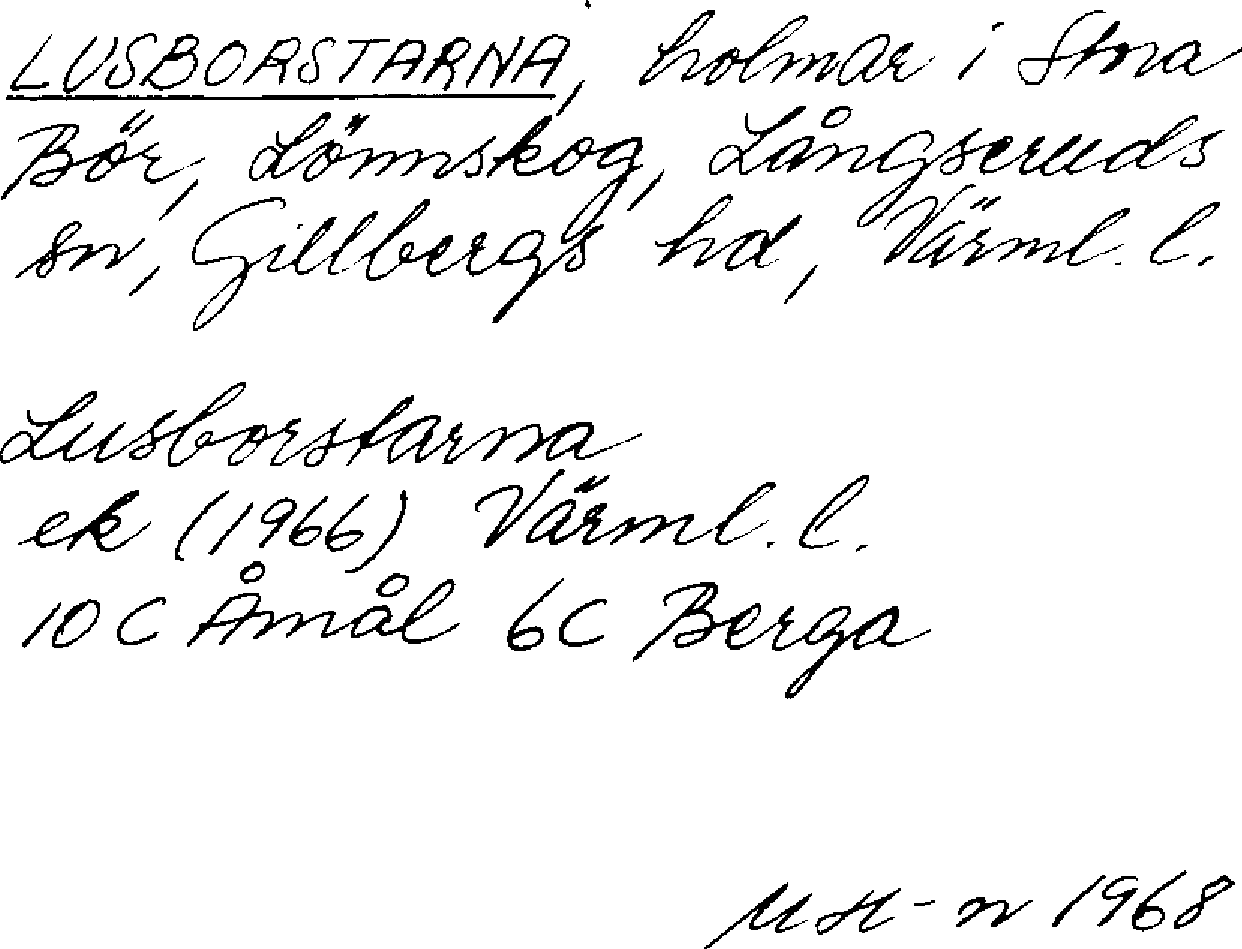 LUSBORSTARNA, holmar i Stora
Bör, Lönnskog, Långseruds
sn, Gillbergs hd, Värml. l.
Lusborstarna
ek (1966) Värml. l.
10 C Åmål 6C Berga
1968